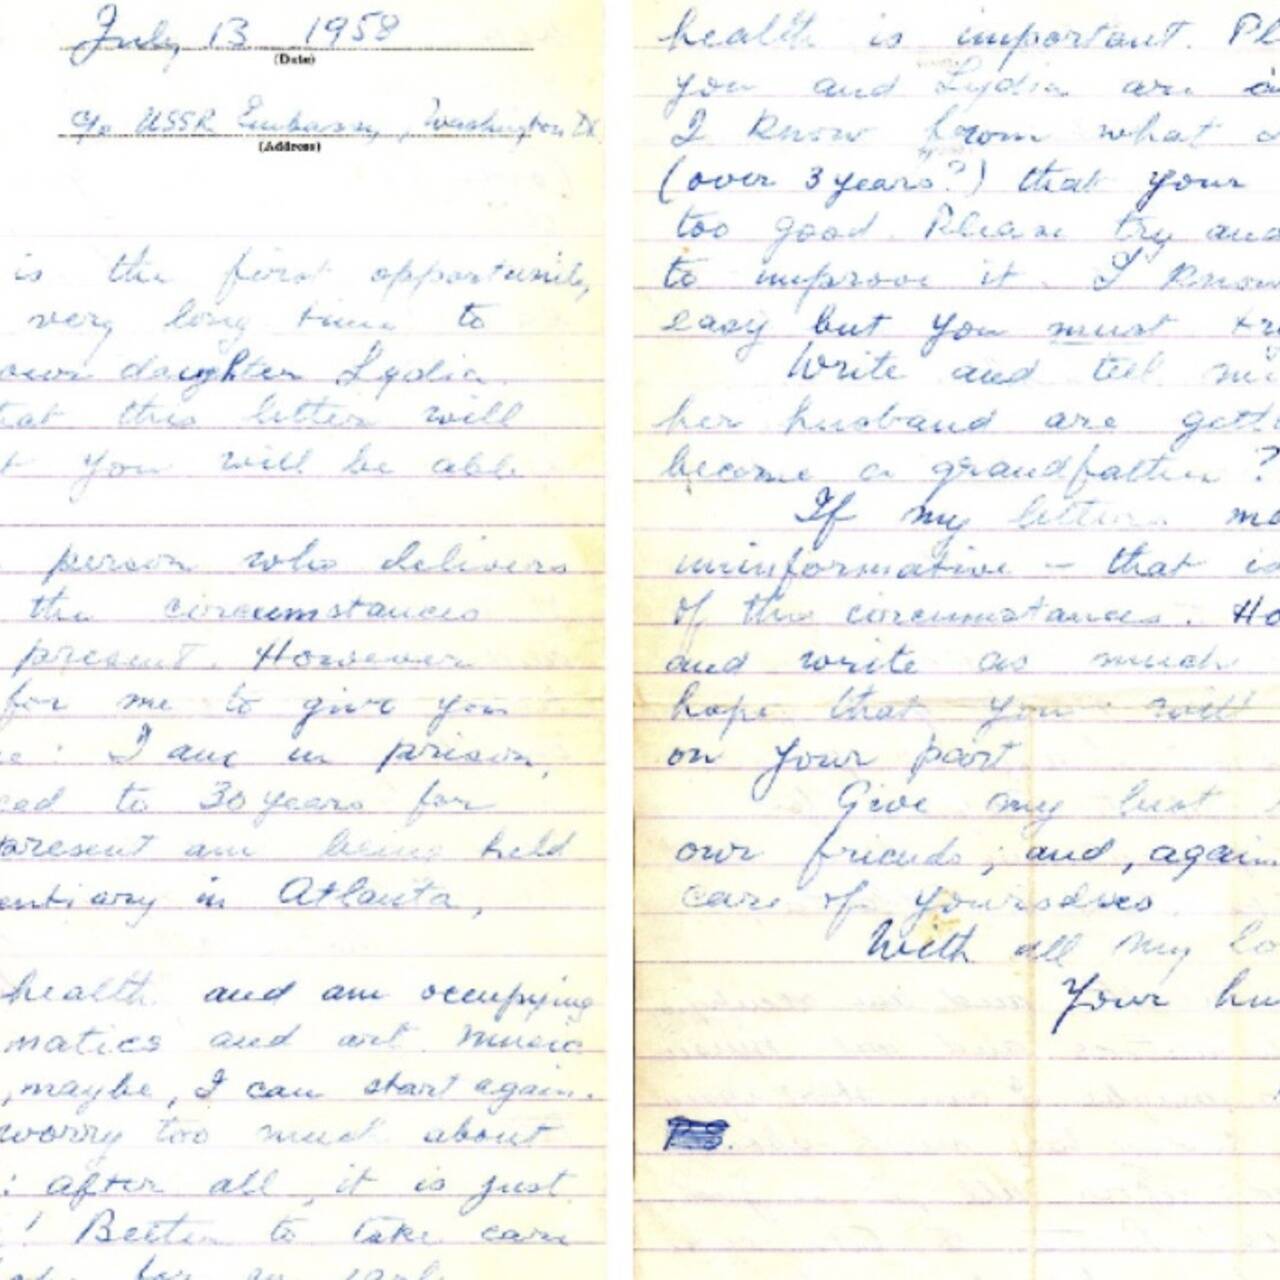 July 13 1958
(Date)
c/o USSR Embassy, Washington DC
(Address)
is the first opportunity
very long time to
own daughter Lydia.
this letter will
you will be able
person who delivers
the circumstances
present. However
for me to give you
I am in prison,
to 30 years for
present am being held
in Atlanta,
health and am occupying
matics and art. Music
, maybe, I can start again.
worry too much about
: after all, it is just
! Better to take care
for an early
health is important. Pl
you and Lydia are
I know from what
(over 3 years?) that your
too good. Please try and
to improve it. I know
easy but you must
Write and tell me
her husband are
become a grandfather ?
If my letters
uninformative - that is
of the circumstances. Ho
and write as much
hope that you will
on your part
Give my best
our friends; and, again
care of yourselves.
With all my lo
Your hu
PS.